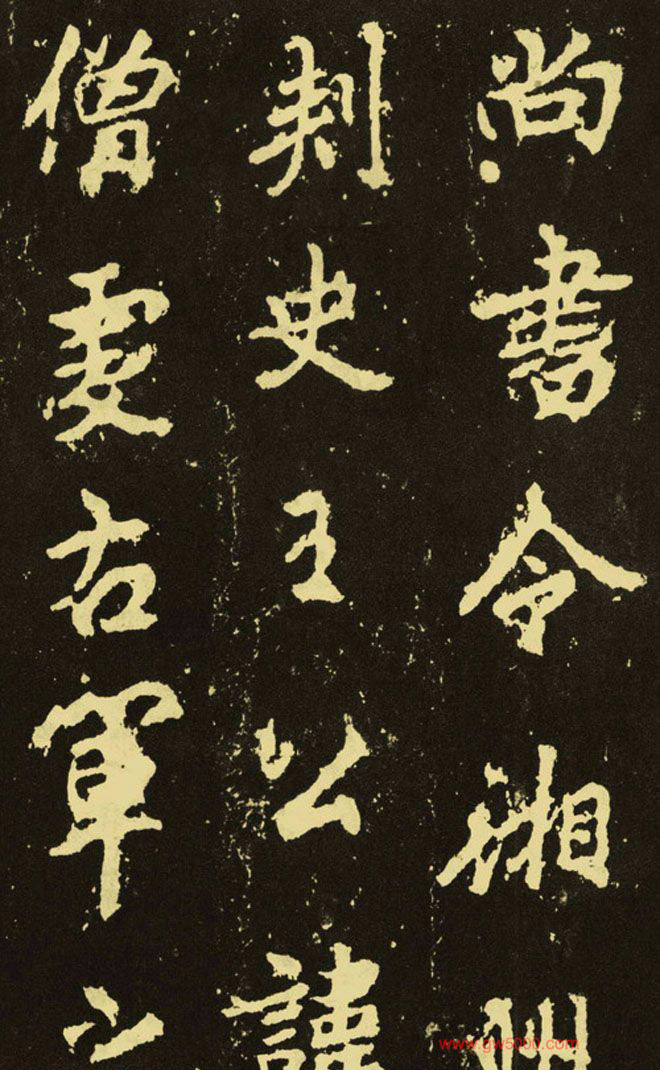 尚書令湘州
刺史王公諱
僧虔右軍之
www.gw5000.com